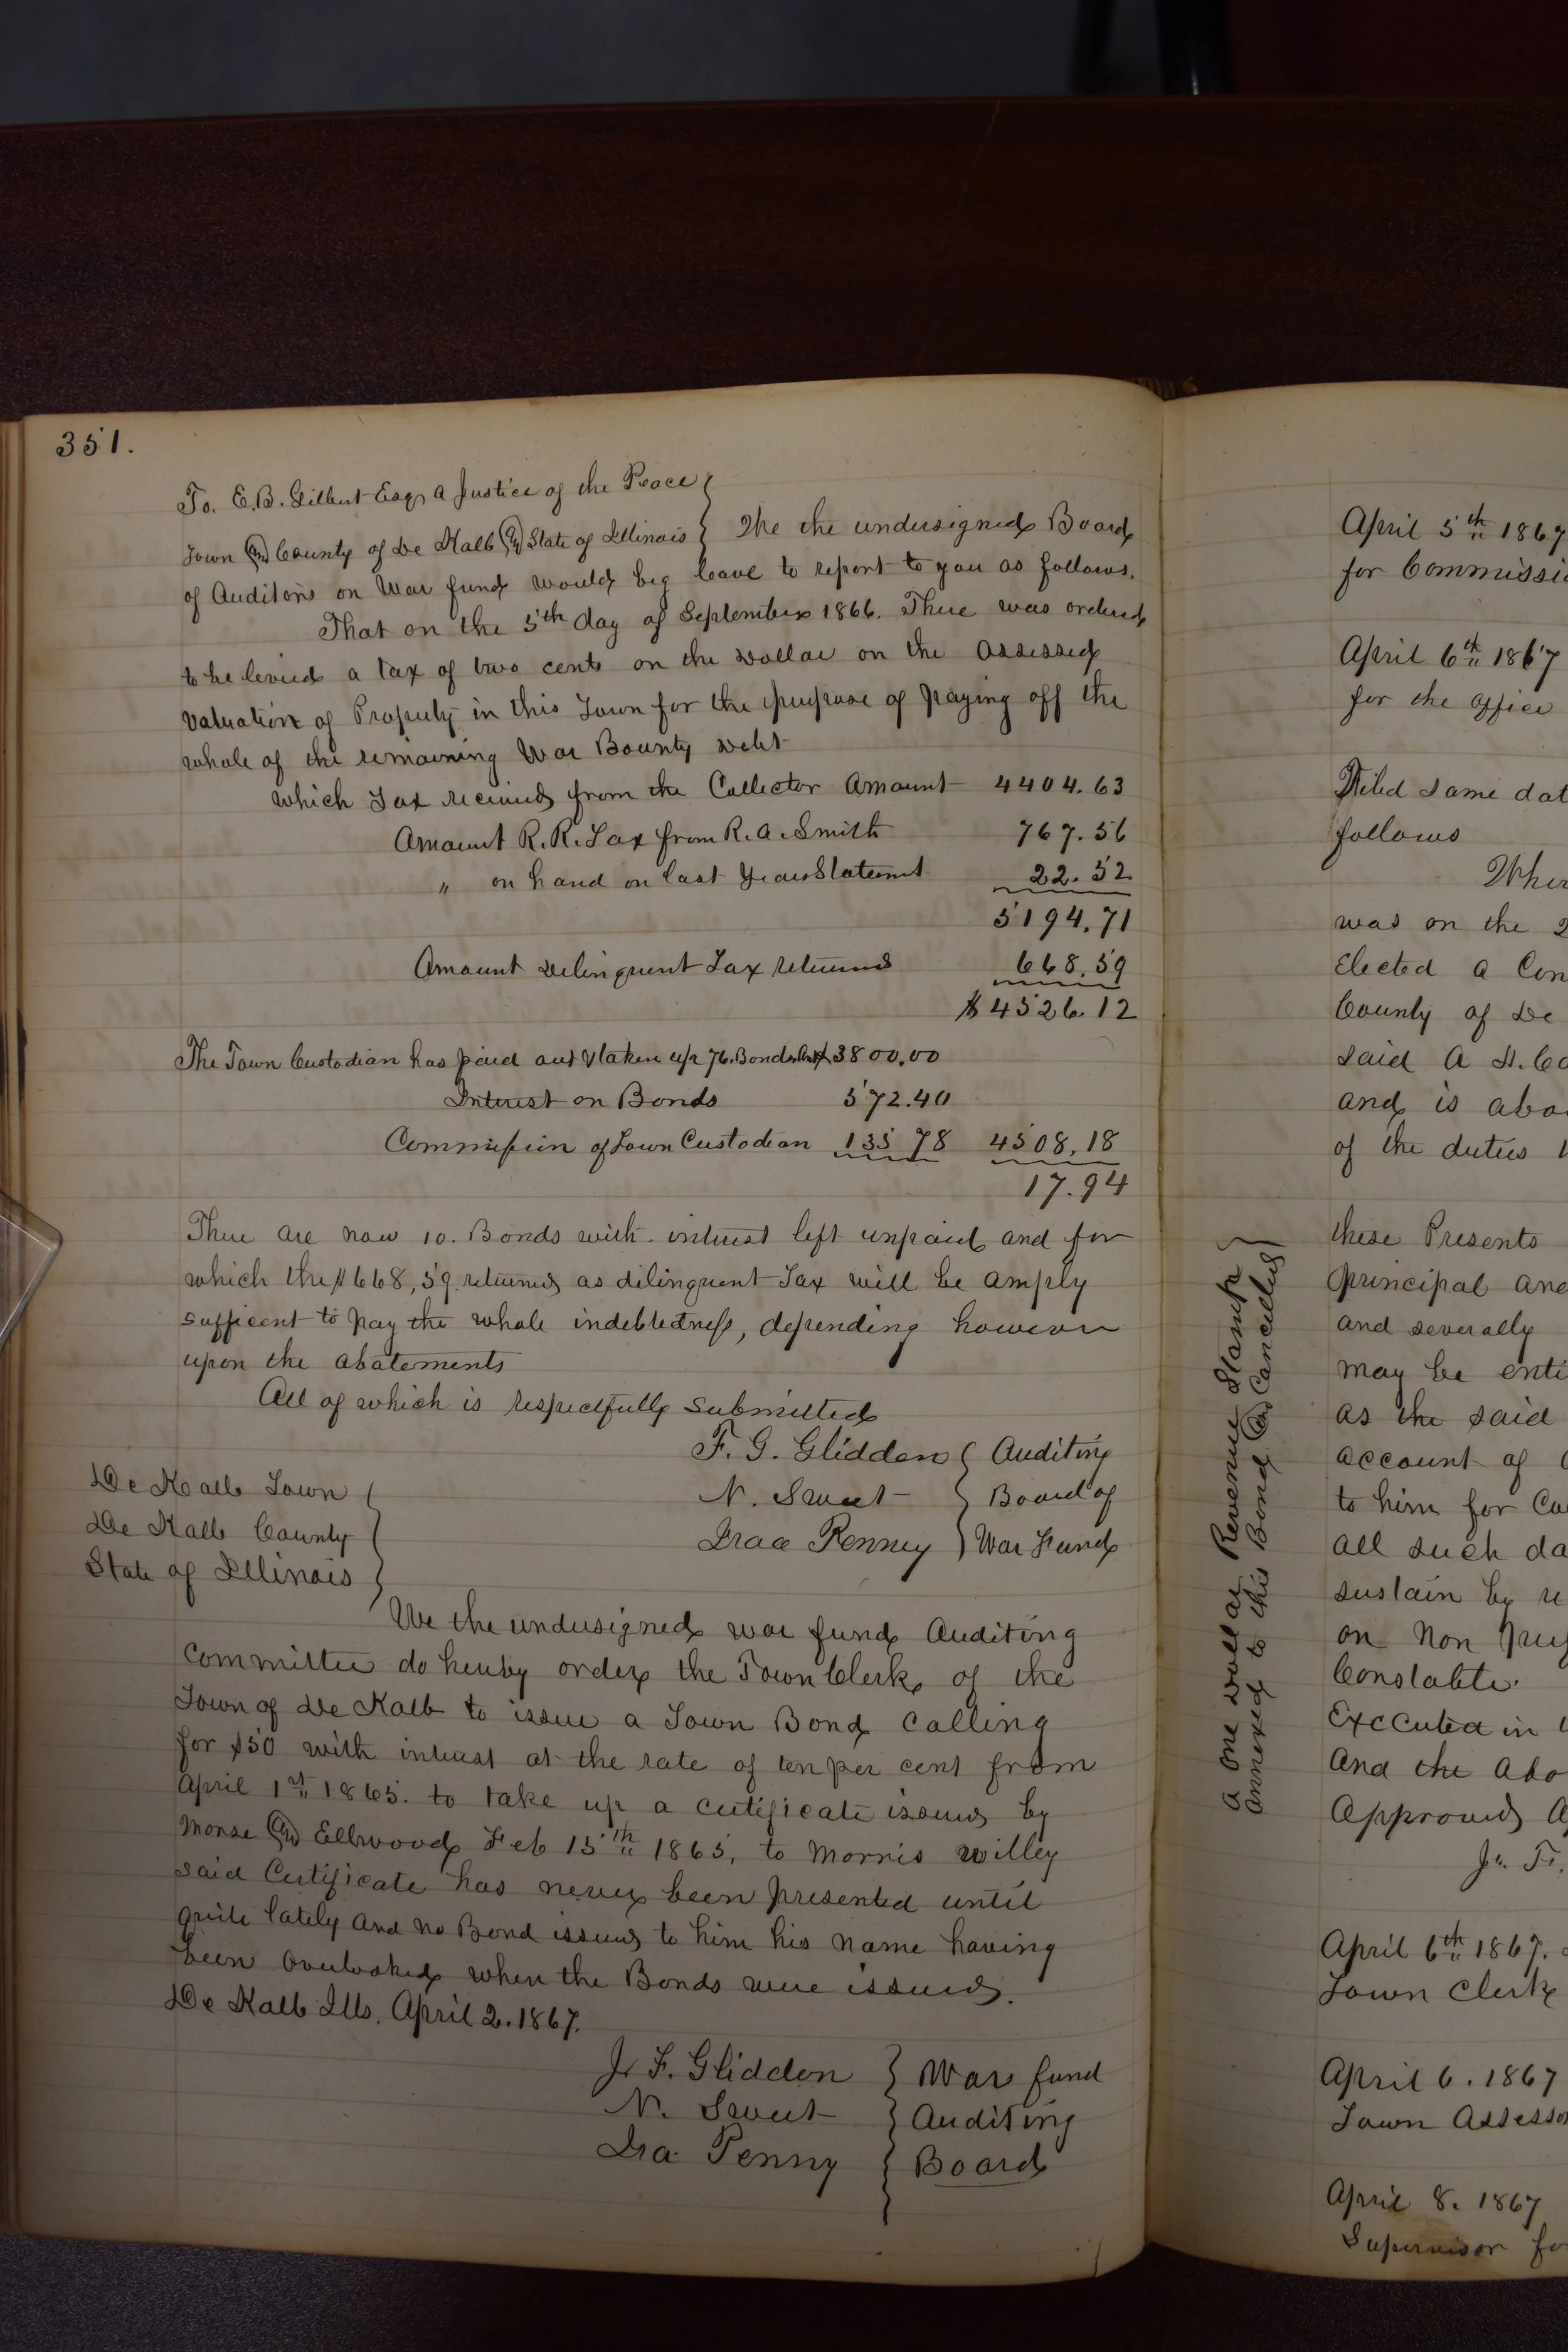 351.
To. E.B. Gilbert Esqr a Justice of the Peace
Town & County of De Kalb & State of Illinois } We the undersigned Board
of Auditors on War fund would beg leave to report to you as follows.
That on the 5th day of September 1866. There was ordered
to be levied a tax of two cents on the Dollar on the assessed
valuation of Property in this Town for the purpose of paying off the
whole of the remaining War Bounty Debt
which Tax received from the Collector Amount 4404.63
Amount R.R. Tax from R.A. Smith 767.56
" on hand on last Years Statemnt 22.52
5194.71
Amount Delinquent Tax returned 668.59
$4526.12
The Town Custodian has paid out & taken up 76. Bonds Amt $3800.00
Interest on Bonds 572.40
Commission of Town Custodian 135 78 4508,18
17.94
There are now 10. Bonds with interest left unpaid and for
which the $668,59. returned as dilinquent Tax will be amply
sufficent to pay the whole indebtedness, depending however
upon the abatements
All of which is respectfully Submitted
F. G. Glidden } Auditing
N. Sweet } Board of
Iraa Penney } War Fund
De Kalb Town
De Kalb County
State of Illinois
We the undersigned war fund Auditing
Committee do hereby order the Town Clerk of the
Town of De Kalb to issue a Town Bond Calling
for $50 with interest at the rate of ten per cent from
April 1st 1865. to take up a cirtificate issued by
Morse & Ellwood Feb 15th 1865, to Morris Willey
said Certificate has never been presented until
quite lately and no Bond issued to him his name having
been overlooked when the Bonds were issued.
De Kalb Ills. April 2. 1867.
J. F. Glidden } War fund
N. Sweet } Auditing
Ira Penny } Board
A One Dollar Revenue Stamp
annexed to this Bond & Cancelled
April 5th 1867
for Commissi
April 6th 1867
for the office
Filed Same dat
follows
Wher
was on the 2
Elected a Con
County of De
said A H. Co
and is abo
of the duties
these Presents
principal and
and severally
may be enti
as the said
account of
to him for Co
all such da
sustain by
on Non
Constable.
Executed in
and the abo
Approved
J. F.
April 6th 1867.
Town Clerk
April 6. 1867
Town Assesso
April 8. 1867
Supervisor fo